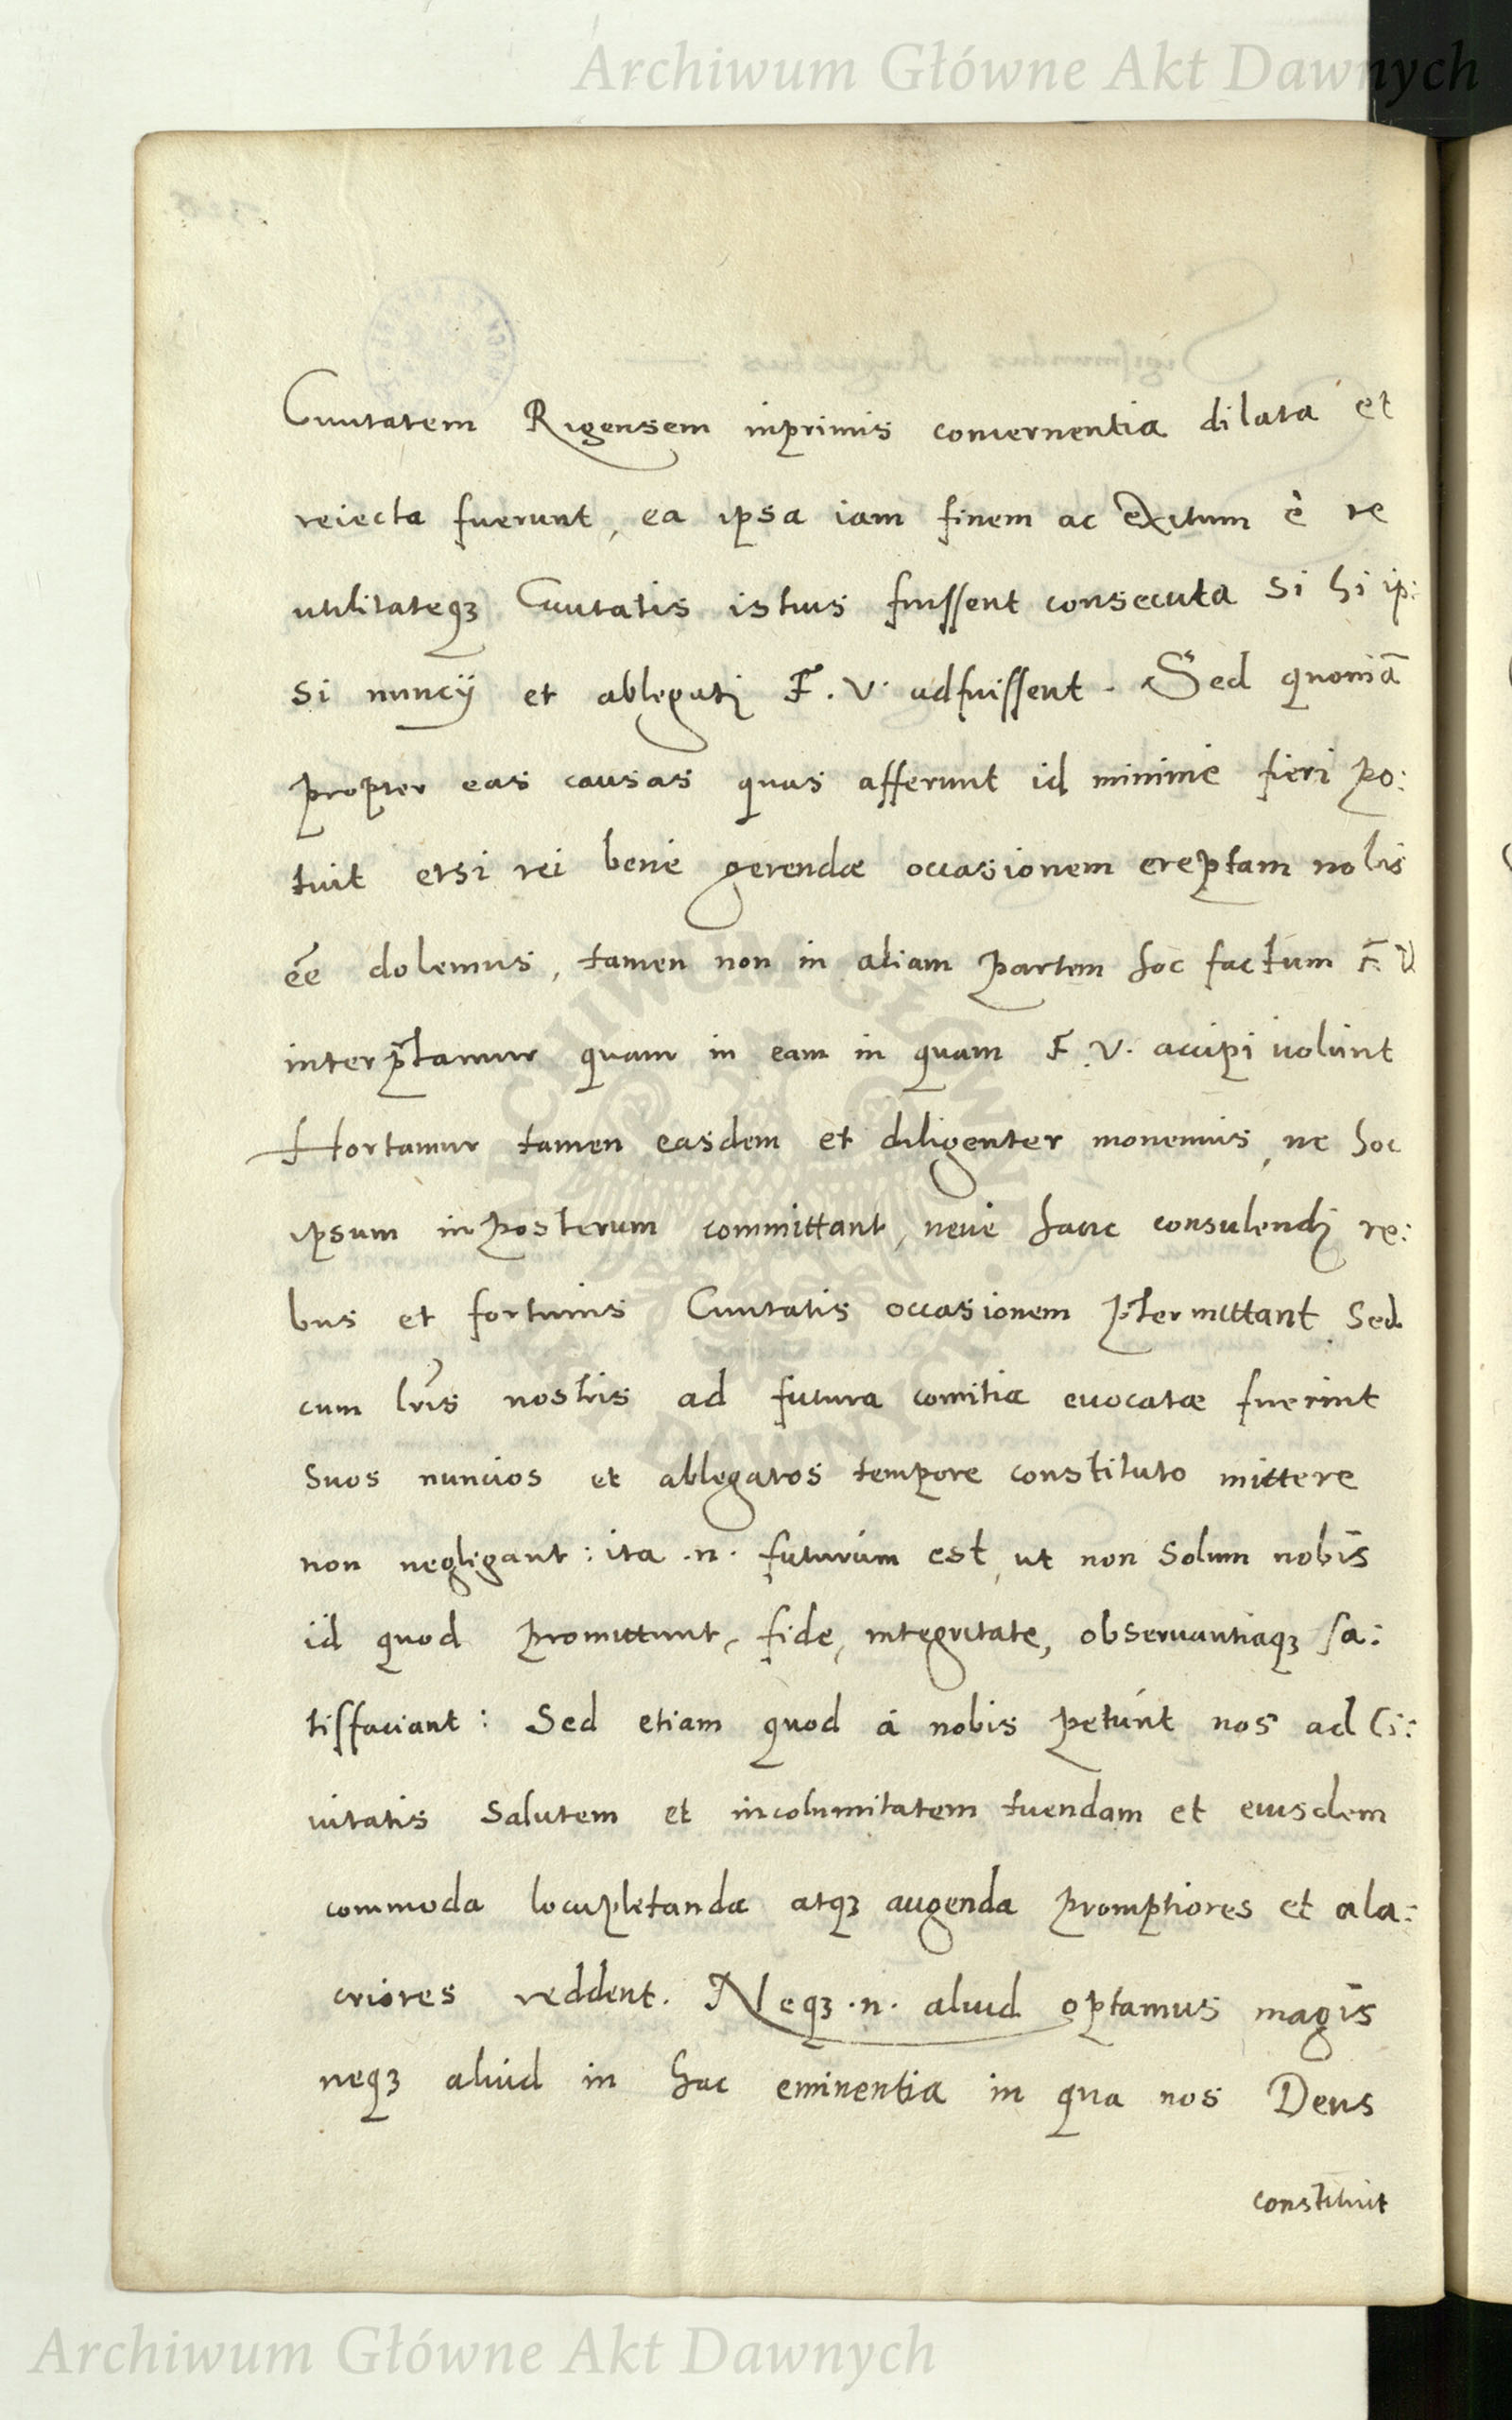 Archiwum Główne Akt Dawnych
Ciuitatem Rigensem inprimis concernentia dilata et
reiecta fuerunt, ea ipsa iam finem ac exitum è re
utilitateqꝫ Ciuitatis istius fuissent consecuta si hi ip:
si nuncij et ablegati F. V. adfuissent. Sed quoniã
propter eas causas quas afferunt id minime fieri po:
tuit etsi rei bene gerendæ occasionem ereptam nobis
eẽ dolemus, tamen non in aliam partem hoc factum F. V
interp̃tamur quam in eam in quam F. V. accipi uolunt
Hortamur tamen easdem et diligenter monemus, ne hoc
ipsum inposterum committant, neue hanc consulendi re:
bus et fortunis Ciuitatis occasionem p̃termittant. Sed
cum lr̃is nostris ad futura comitia euocatæ fuerint
suos nuncios et ablegatos tempore constituto mittere
non negligant: ita .n. futurum est, ut non solum nobis
id quod promittunt, fide, integritate, obseruantiaqꝫ sa:
tisfaciant: Sed etiam quod à nobis petunt nos ad Ci:
uitatis salutem et incolumitatem tuendam et eiusdem
commoda locupletanda atqꝫ augenda promptiores et ala:
criores reddent. Neqꝫ .n. aliud optamus magis
neqꝫ aliud in hac eminentia in qua nos Deus
constituit
Archiwum Główne Akt Dawnych